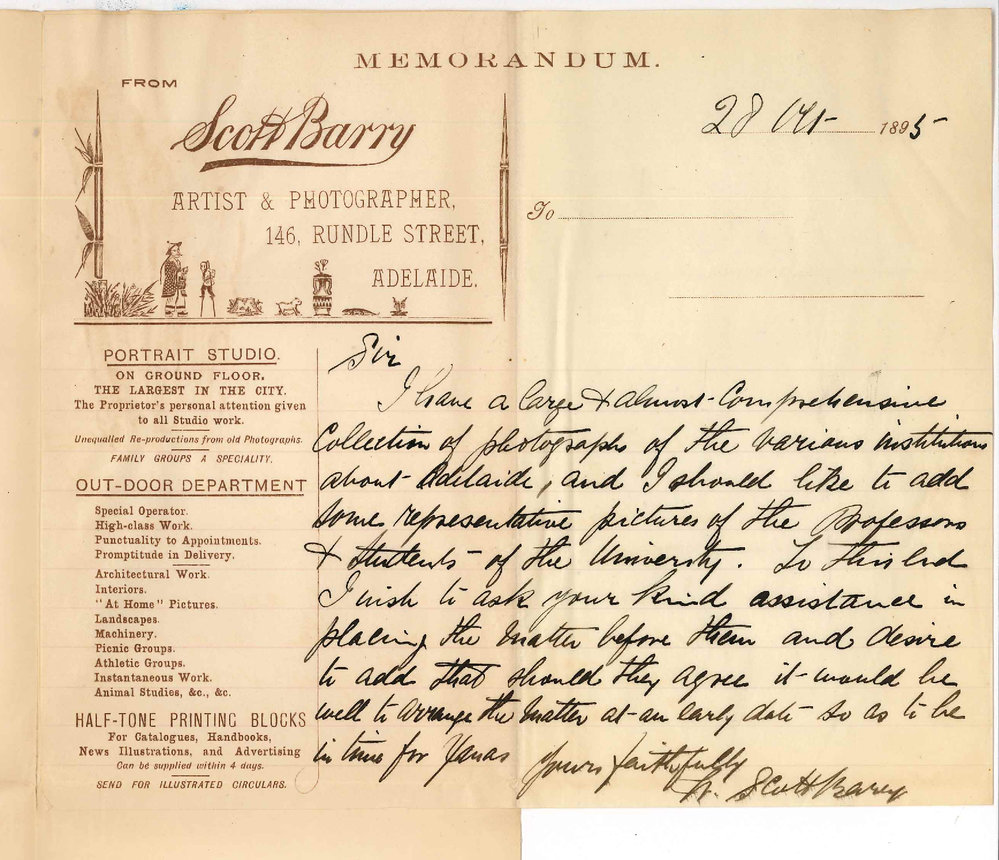 MEMORANDUM.
FROM
Scott Barry
ARTIST & PHOTOGRAPHER,
146, RUNDLE STREET,
ADELAIDE.
28 Oct 1895
To
PORTRAIT STUDIO.
ON GROUND FLOOR.
THE LARGEST IN THE CITY.
The Proprietor's personal attention given
to all Studio work.
Unequalled Re-productions from old Photographs.
FAMILY GROUPS A SPECIALITY.
OUT-DOOR DEPARTMENT
Special Operator.
High-class Work.
Punctuality to Appointments.
Promptitude in Delivery.
Architectural Work.
Interiors.
"At Home" Pictures.
Landscapes.
Machinery.
Picnic Groups.
Athletic Groups.
Instantaneous Work.
Animal Studies, &c., &c.
HALF-TONE PRINTING BLOCKS
For Catalogues, Handbooks,
News Illustrations, and Advertising
Can be supplied within 4 days.
SEND FOR ILLUSTRATED CIRCULARS.
Sir
I have a large & almost comprehensive
collection of photographs of the various institutions
about Adelaide, and I should like to add
some representative pictures of the Professors
& students of the University. To this end
I wish to ask your kind assistance in
placing the matter before them and desire
to add that should they agree it would be
well to arrange the matter at an early date so as to be
in time for Xmas
Yours faithfully
Scott Barry